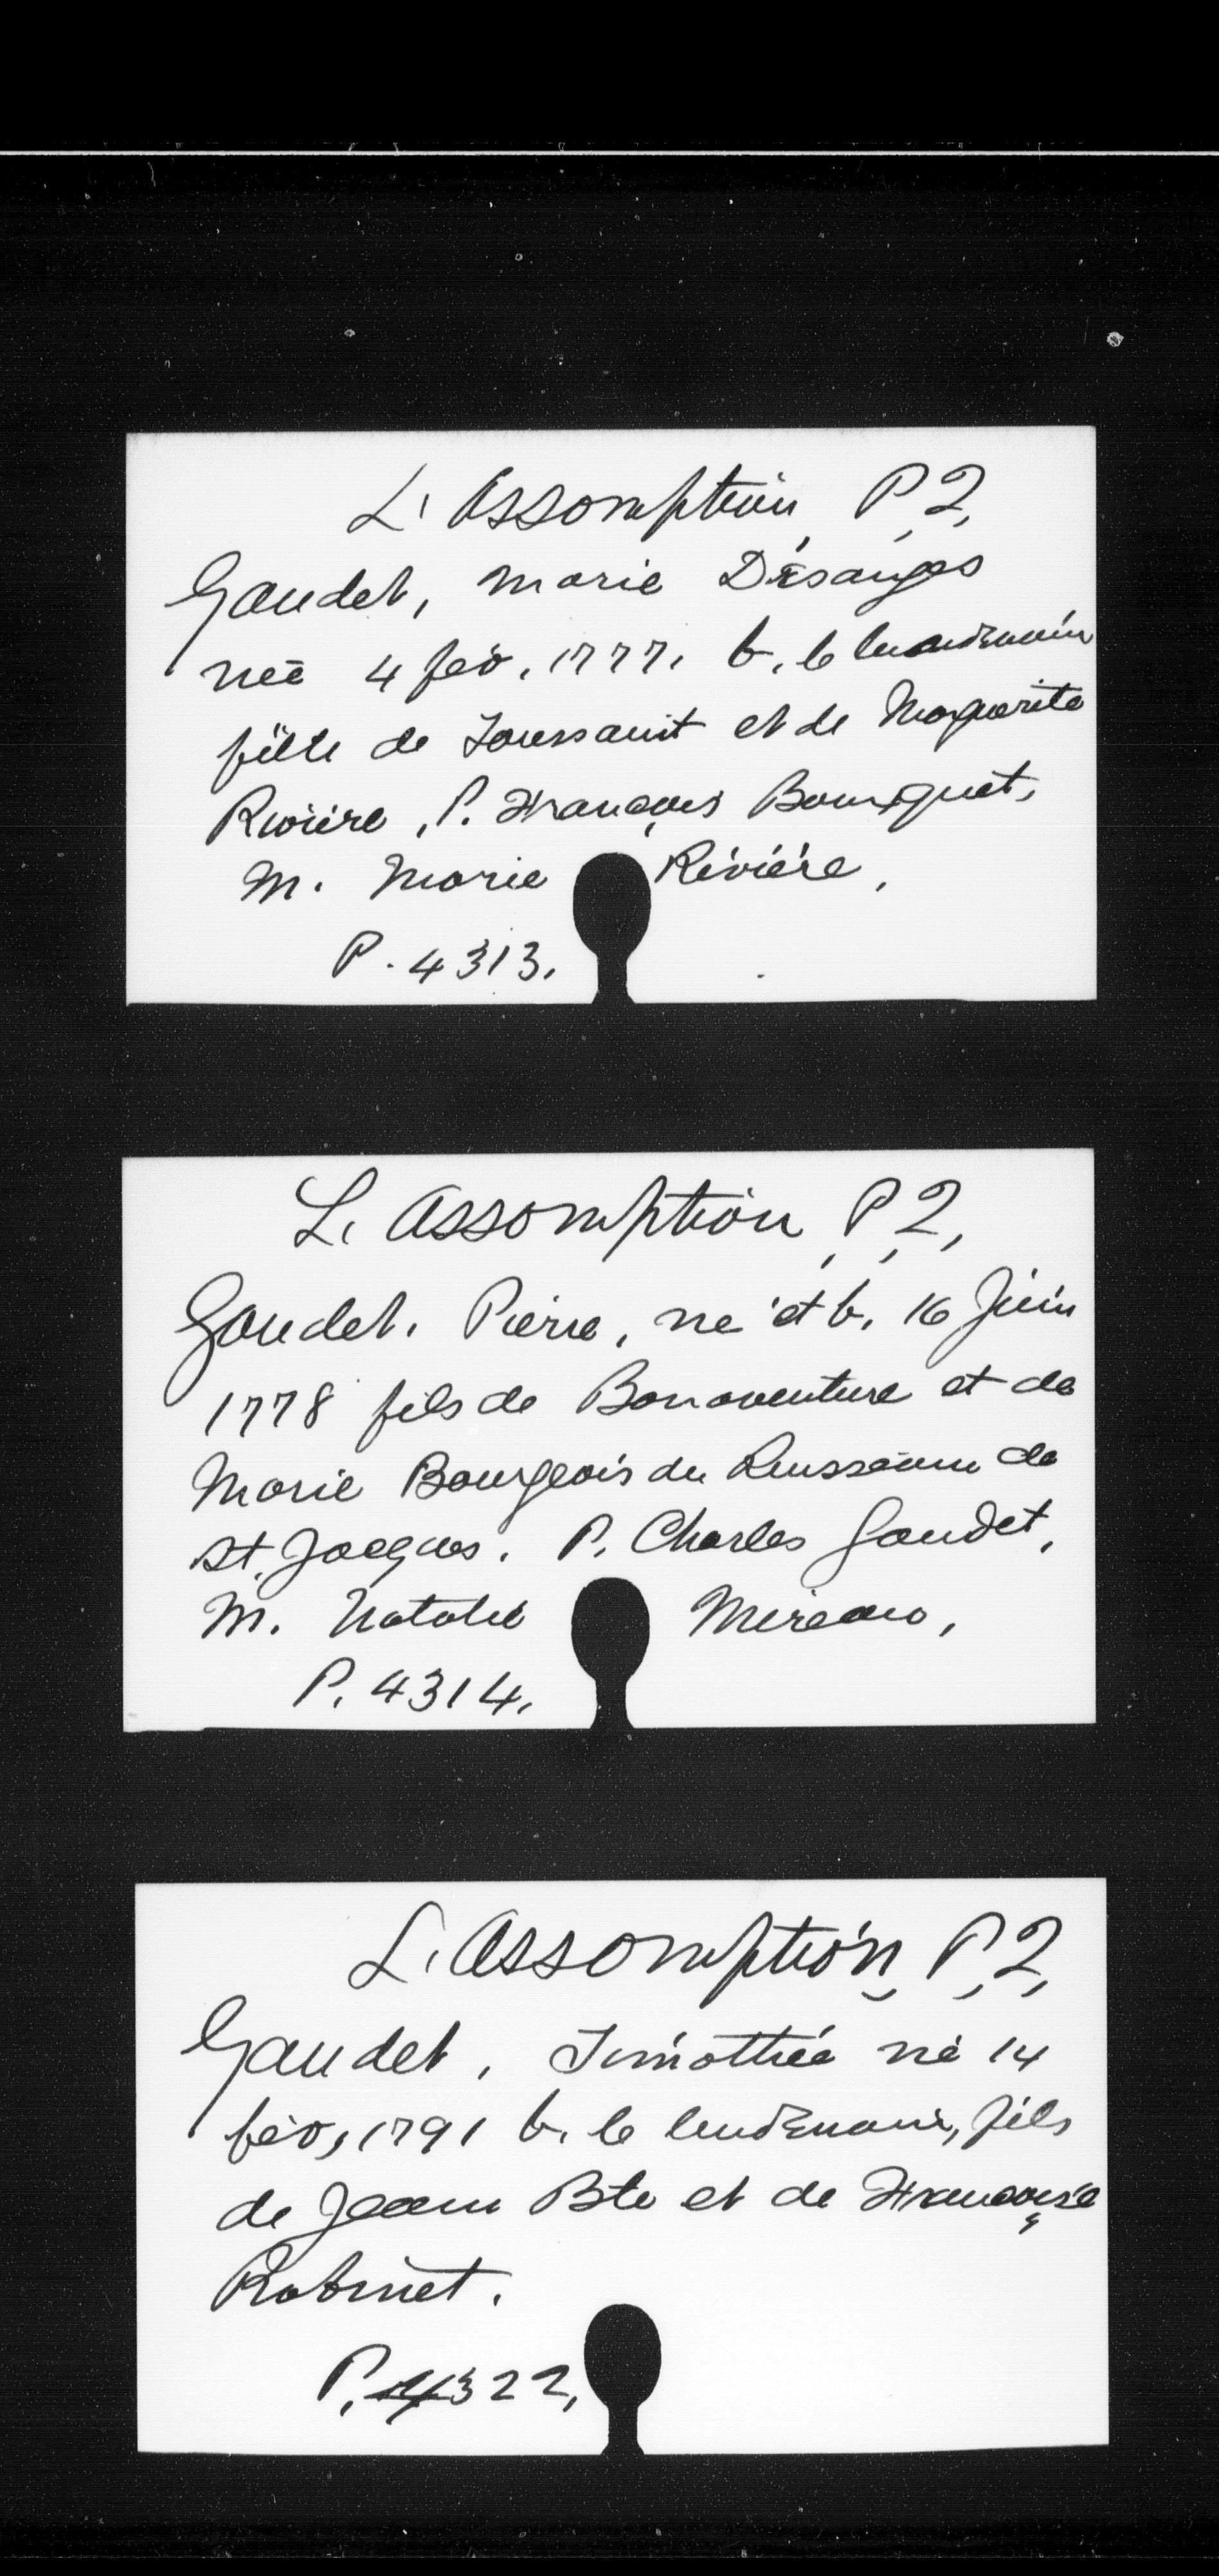 L'Assomption, P, 2,
Gaudet, Marie Désanges
née 4 fév, 1777, b, le lendemain
fille de Toussaint et de Marguerite
Rivière, P. François Bourgquet,
M. Marie Rivière,
P. 4313,
L, Assomption, P, 2,
Gaudet, Pierre, né et b, 16 Juin
1778 fils de Bonaventure et de
Marie Bourgeois du Ruisseau de
St, Jacques. P. Charles Gaudet,
M. Natalie Mireau,
P. 4314,
L, Assomption, P, 2,
Gaudet, Timothée né 14
fév, 1791 b, le lendemain, fils
de Jean Bte et de Françoise
Robinet.
P, 4322,